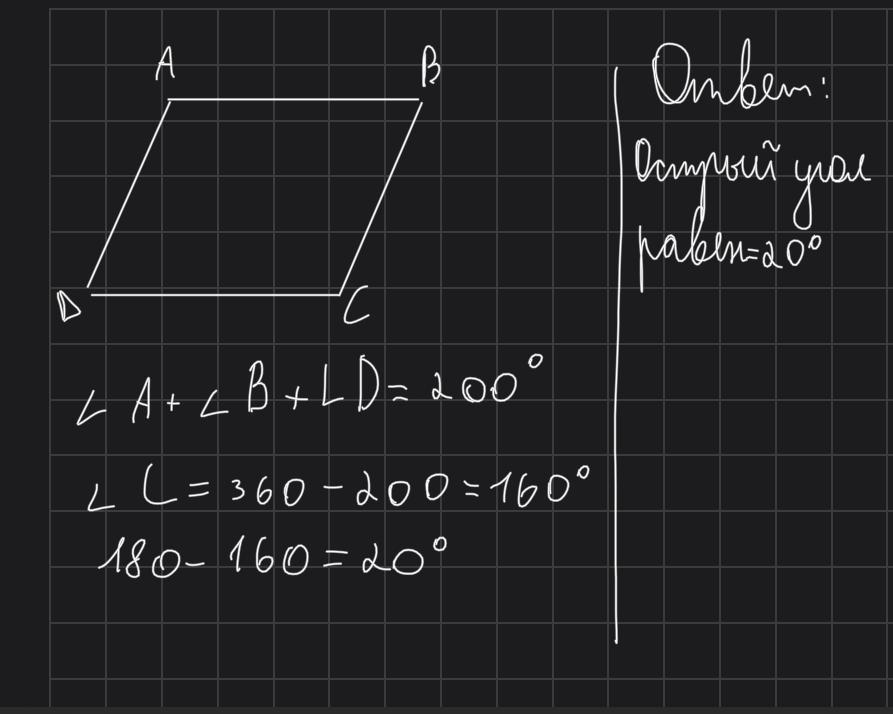 A
B
D
C
∠ A + ∠ B + ∠ D = 200°
∠ C = 360 - 200 = 160°
180 - 160 = 20°
Ответ:
Острый угол
равен = 20°